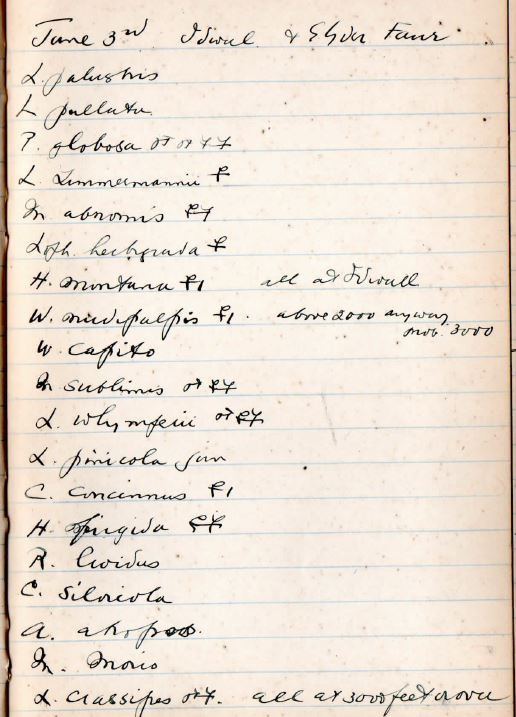 June 3rd Idwal & Glyder Fawr
L. palustris
L. pullata
P. globosa ♂ ♂ ♀♀
L. Zimmermannii ♀
M abnormis ♀
Loph. herbigrada ♀
H. montana ♀1 all at Idwall
W. nudipalpis ♀1. above 2000 anyway
prob. 3000
W. capito
M sublimis ♂ ♀
L. whymperii ♂ ♀
L. pinicola juv
C. concinnus ♀1
H. frigida ♀
R. lividus
C. silvicola
A.
M. morio
L. crassipes ♂ ♀. all at 3000 feet or over